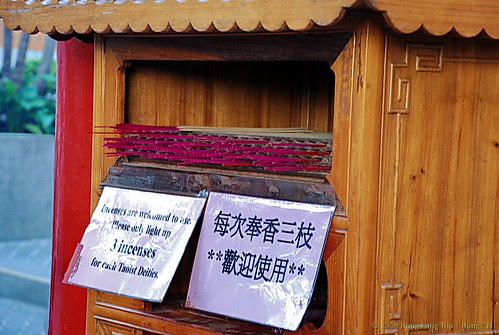 Incenses are welcomed to use.
Please only light up
3 incenses
for each Taoist Deities.
每次奉香三枝
**歡迎使用**
© 2008 Hong Kong Trip - Hong